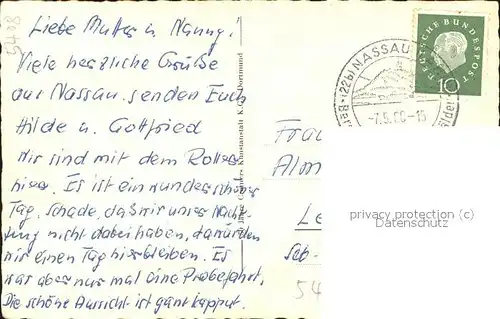 5408
Liebe Mutter u. Nanny!
Viele herzliche Grüße
aus Nassau senden Euch
Hilde u. Gottfried
Wir sind mit dem Roller
hier. Es ist ein wunderschöner
Tag, schade, daß wir unser Nacht-
zeug nicht dabei haben, da würden
wir einen Tag hierbleiben. Es
war aber nur mal eine Probefahrt.
Die schöne Aussicht ist ganz kapput.
Kunstanstalt K.G. Dortmund
(22b) NASSAU
-7.5.60-15
DEUTSCHE BUNDESPOST
10
Frau
Alm
Le
Seb.
54
privacy protection (c)
Datenschutz